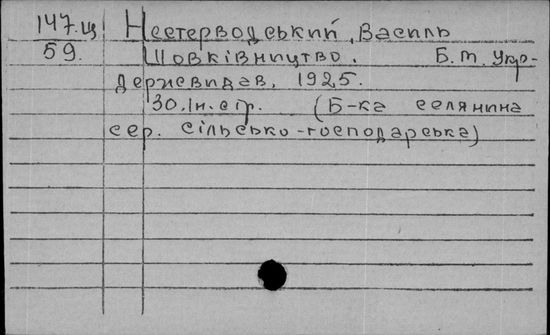 147.Ц Нестерводський, Василь
59. Шовківництво. Б.М. Укр-
держвидав, 1925.
30.Ін. стр. (Б-ка селянина
сер. сільсько-господарська)